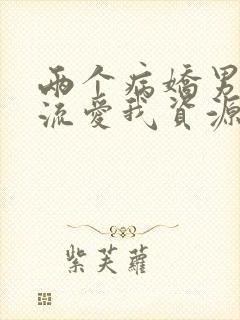 两个病嬌男
流愛我資源
紫芙蘿